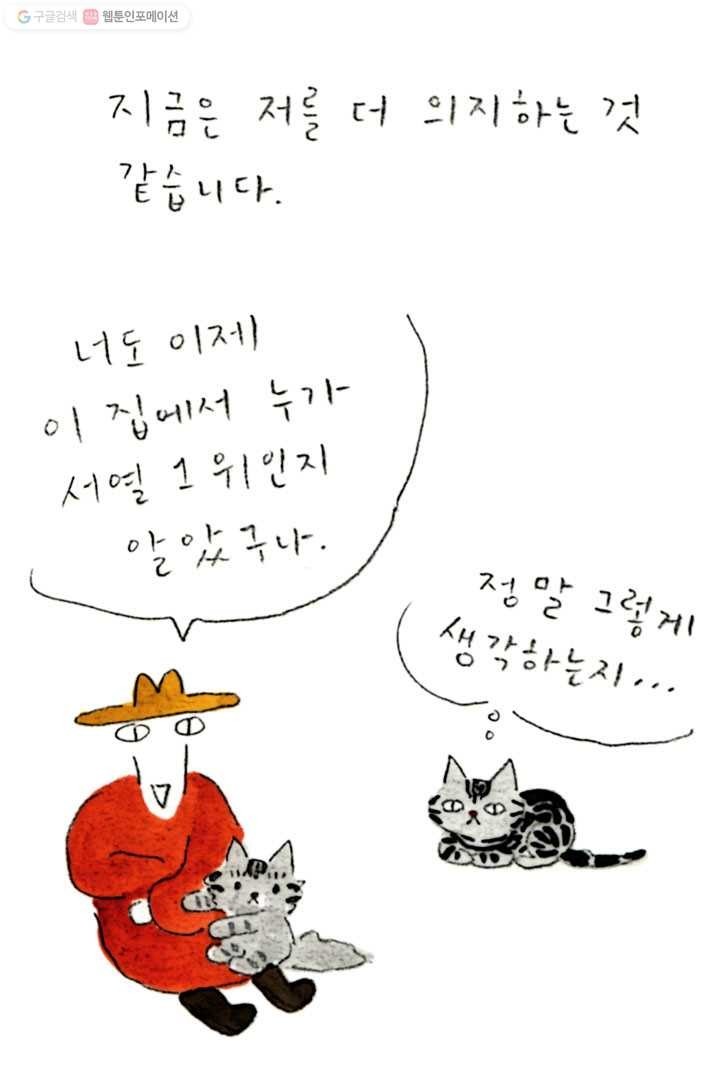 구글검색 웹툰인포메이션
지금은 저를 더 의지하는 것
같습니다.
너도 이제
이 집에서 누가
서열 1위인지
알았구나.
정말 그렇게
생각하는지...